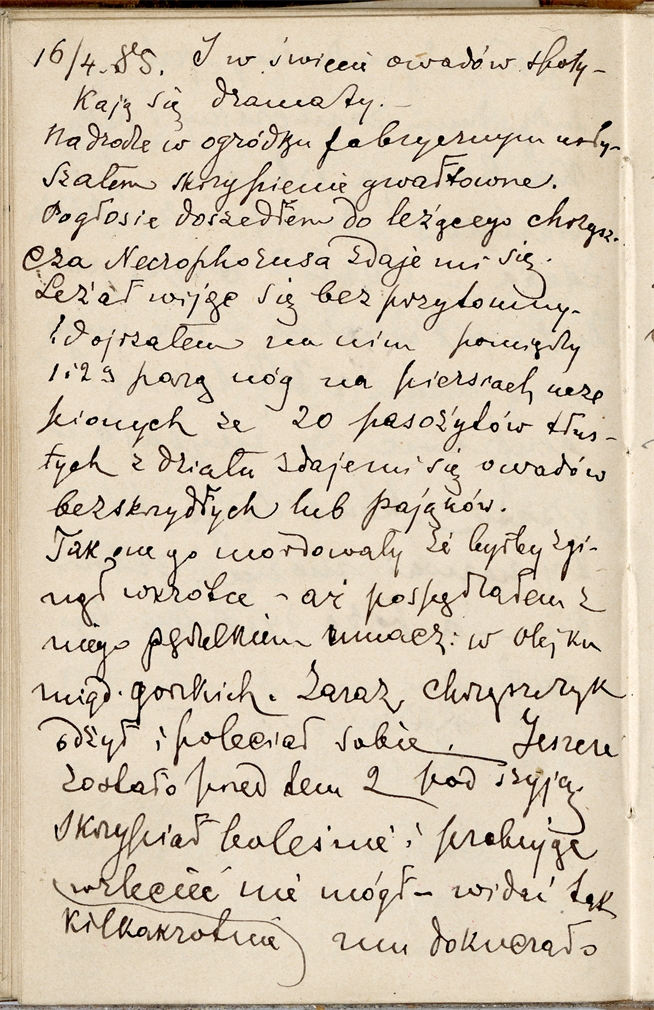 16/4. 85. I w świecie owadów spoty-
kają się dramaty. -
Na drodze w ogródku fabrycznym usły-
szałem skrzypienie gwałtowne.
Pogłosie doszedłem do leżącego chrząsz-
cza Necrophorusa zdaje mi się.
Leżał wijąc się bezprzytomny.
i dojrzałem na nim pomiędzy
1 i 2 gą parą nóg na piersiach, ucze
pionych ze 20 pasożytów tłus-
tych z działu zdaje mi się owadów
bezskrzydłych lub pająków.
Tak one go mordowały że byłby zgi-
nął wkrótce - aż pospędzałem z
niego pędzelkiem umacz: w olejku
migd. gorzkich. Zaraz chrząszczyk
odżył i poleciał sobie. Jeszcze
zostało przed tem 2 pod szyją
skrzypiał boleśnie i próbując
wzlecieć nie mógł - widać tak
kilkakrotnie mu dokuczało